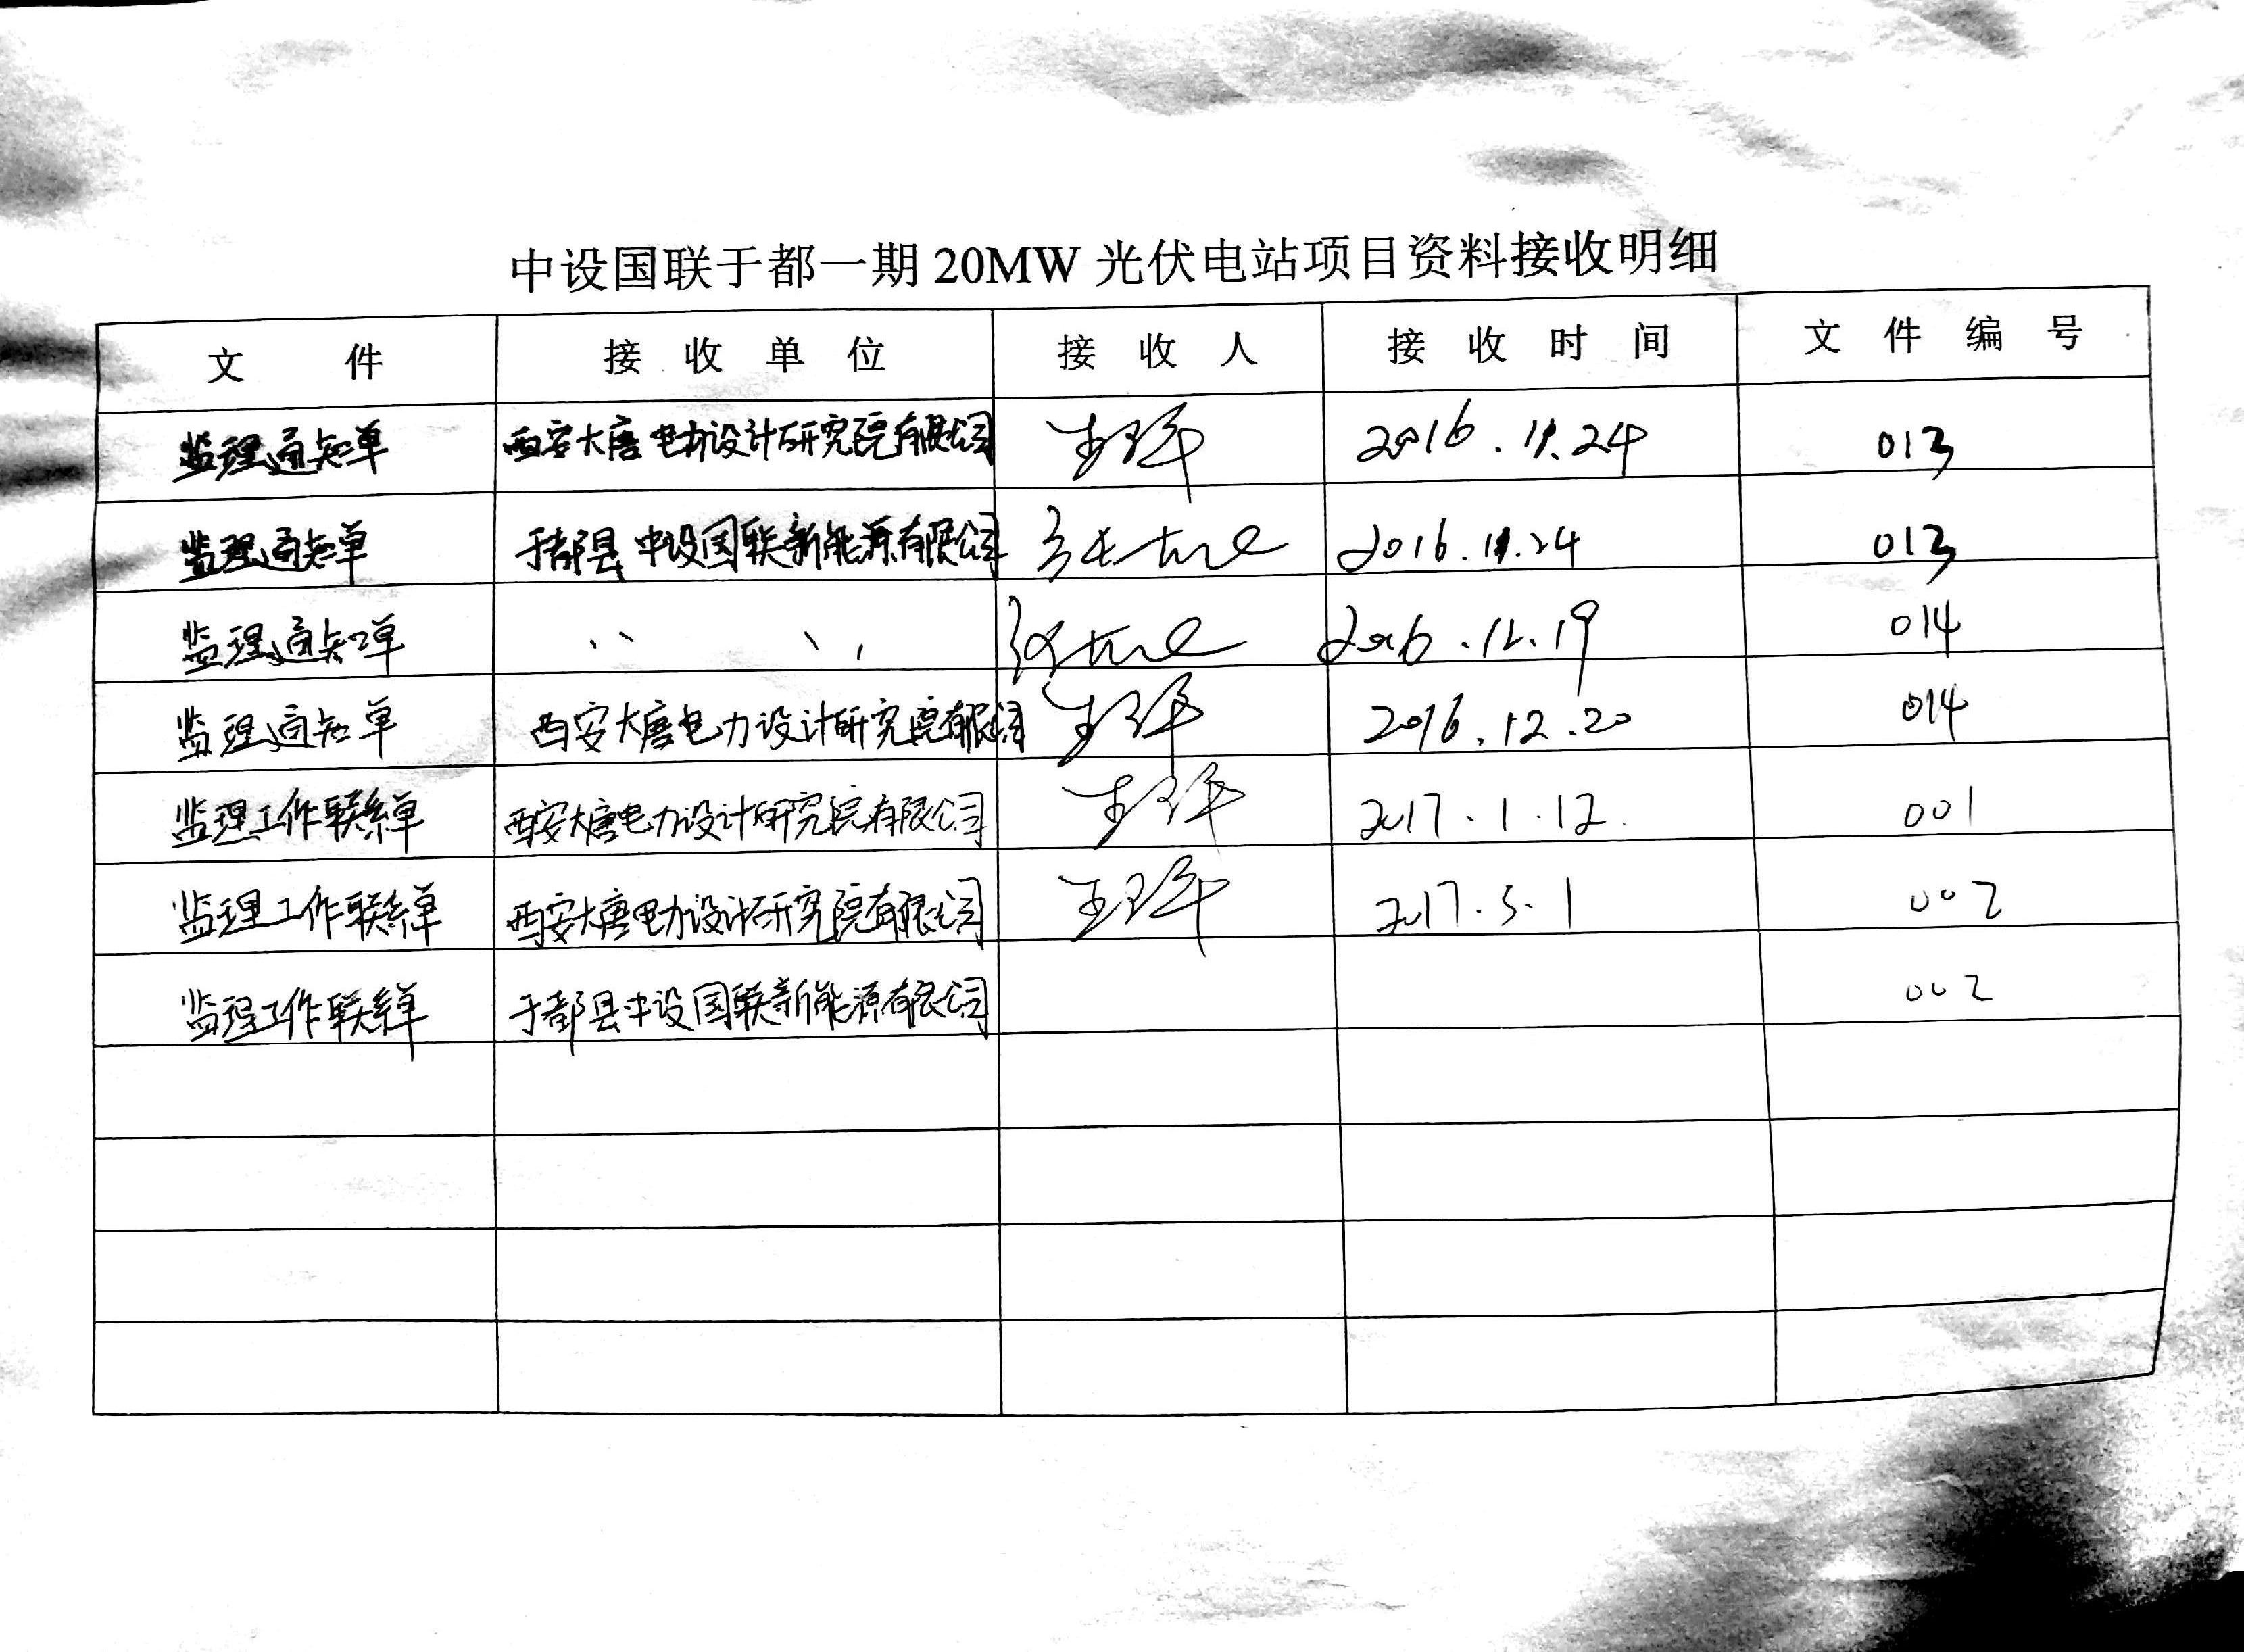 中设国联于都一期 20MW 光伏电站项目资料接收明细
文 件 接 收 单 位 接 收 人 接 收 时 间 文 件 编 号
监理通知单 西安大唐电力设计研究院有限公司 2016.11.24 013
监理通知单 于都县中设国联新能源有限公司 2016.11.24 013
监理通知单 〃 〃 2016.12.19 014
监理通知单 西安大唐电力设计研究院有限公司 2016.12.20 014
监理工作联系单 西安大唐电力设计研究院有限公司 2017.1.12 001
监理工作联系单 西安大唐电力设计研究院有限公司 2017.5.1 002
监理工作联系单 于都县中设国联新能源有限公司 002